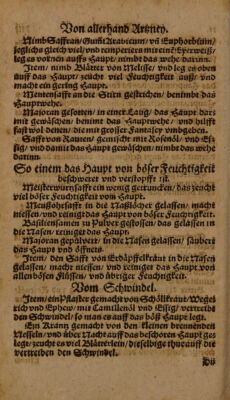 Von allerhand Artzney.
Nimb Saffran/ Gum̃i Arabicum/ vñ Euphorbium/
jegliches gleich viel/ vnd temperiers mit eim Eyerweiß/
leg es vornen auffs Haupt/ nimbt das wehe darinn.
Item/ nimb Blätter von Melisse/ vnd leg es oben
auff das Haupt/ zeucht viel Feuchtigkeit auß/ vnd
macht ein gering Haupt.
Mentensafft an die Stirn gestrichen/ benimbt das
Hauptwehe.
Majoran gesotten/ in einer Laug/ das Haupt darmit
gewäschen/ benimt das Hauptwehe/ vnd hilfft
fast wol denen/ die mit grosser Fantasey vmbgehen.
Safft von Rauten/ gemischt mit Rosenöl/ vnd Essig/
vnd damit das Haupt gewäschen/ nimbt das wehe
darinn.
So einem das Haupt von böser Feuchtigkeit
beschweret vnd verstopfft ist.
Meisterwurtzsafft ein wenig getruncken/ das zeucht
viel böser Feuchtigkeit vom Haupt.
Meußöhrsafft in die Naßlöcher gelassen/ macht
niessen/ vnd reinigt das Haupt von böser Feuchtigkeit.
Basiliensamen zu Pulver gestossen/ das gelassen in
die Nasen/ reiniget das Haupt.
Majoran gepülvert/ in die Nasen gelassen/ säubert
das Haupt vnd öffnets.
Item/ den Safft von Erdäpffelkraut in die Nasen
gelassen/ macht niessen/ vnd reiniget das Haupt von
allen bösen Flüssen/ vnd übriger Feuchtigkeit.
Vom Schwindel.
Item/ ein Pflaster gemacht von Schöllkraut/ Wegerich
vnd Ephew/ mit Camillenöl vnd Essig/ vertreibt
den Schwindel/ so man es auff das böß Haupt legt.
Ein Krantz gemacht von den kleinen brennenden
Nesseln/ vnd über Nacht auff das beschoren Haupt gelegt/
zeucht es viel Blätterlein/ dieselbige thue auff die
vertreiben den Schwindel.